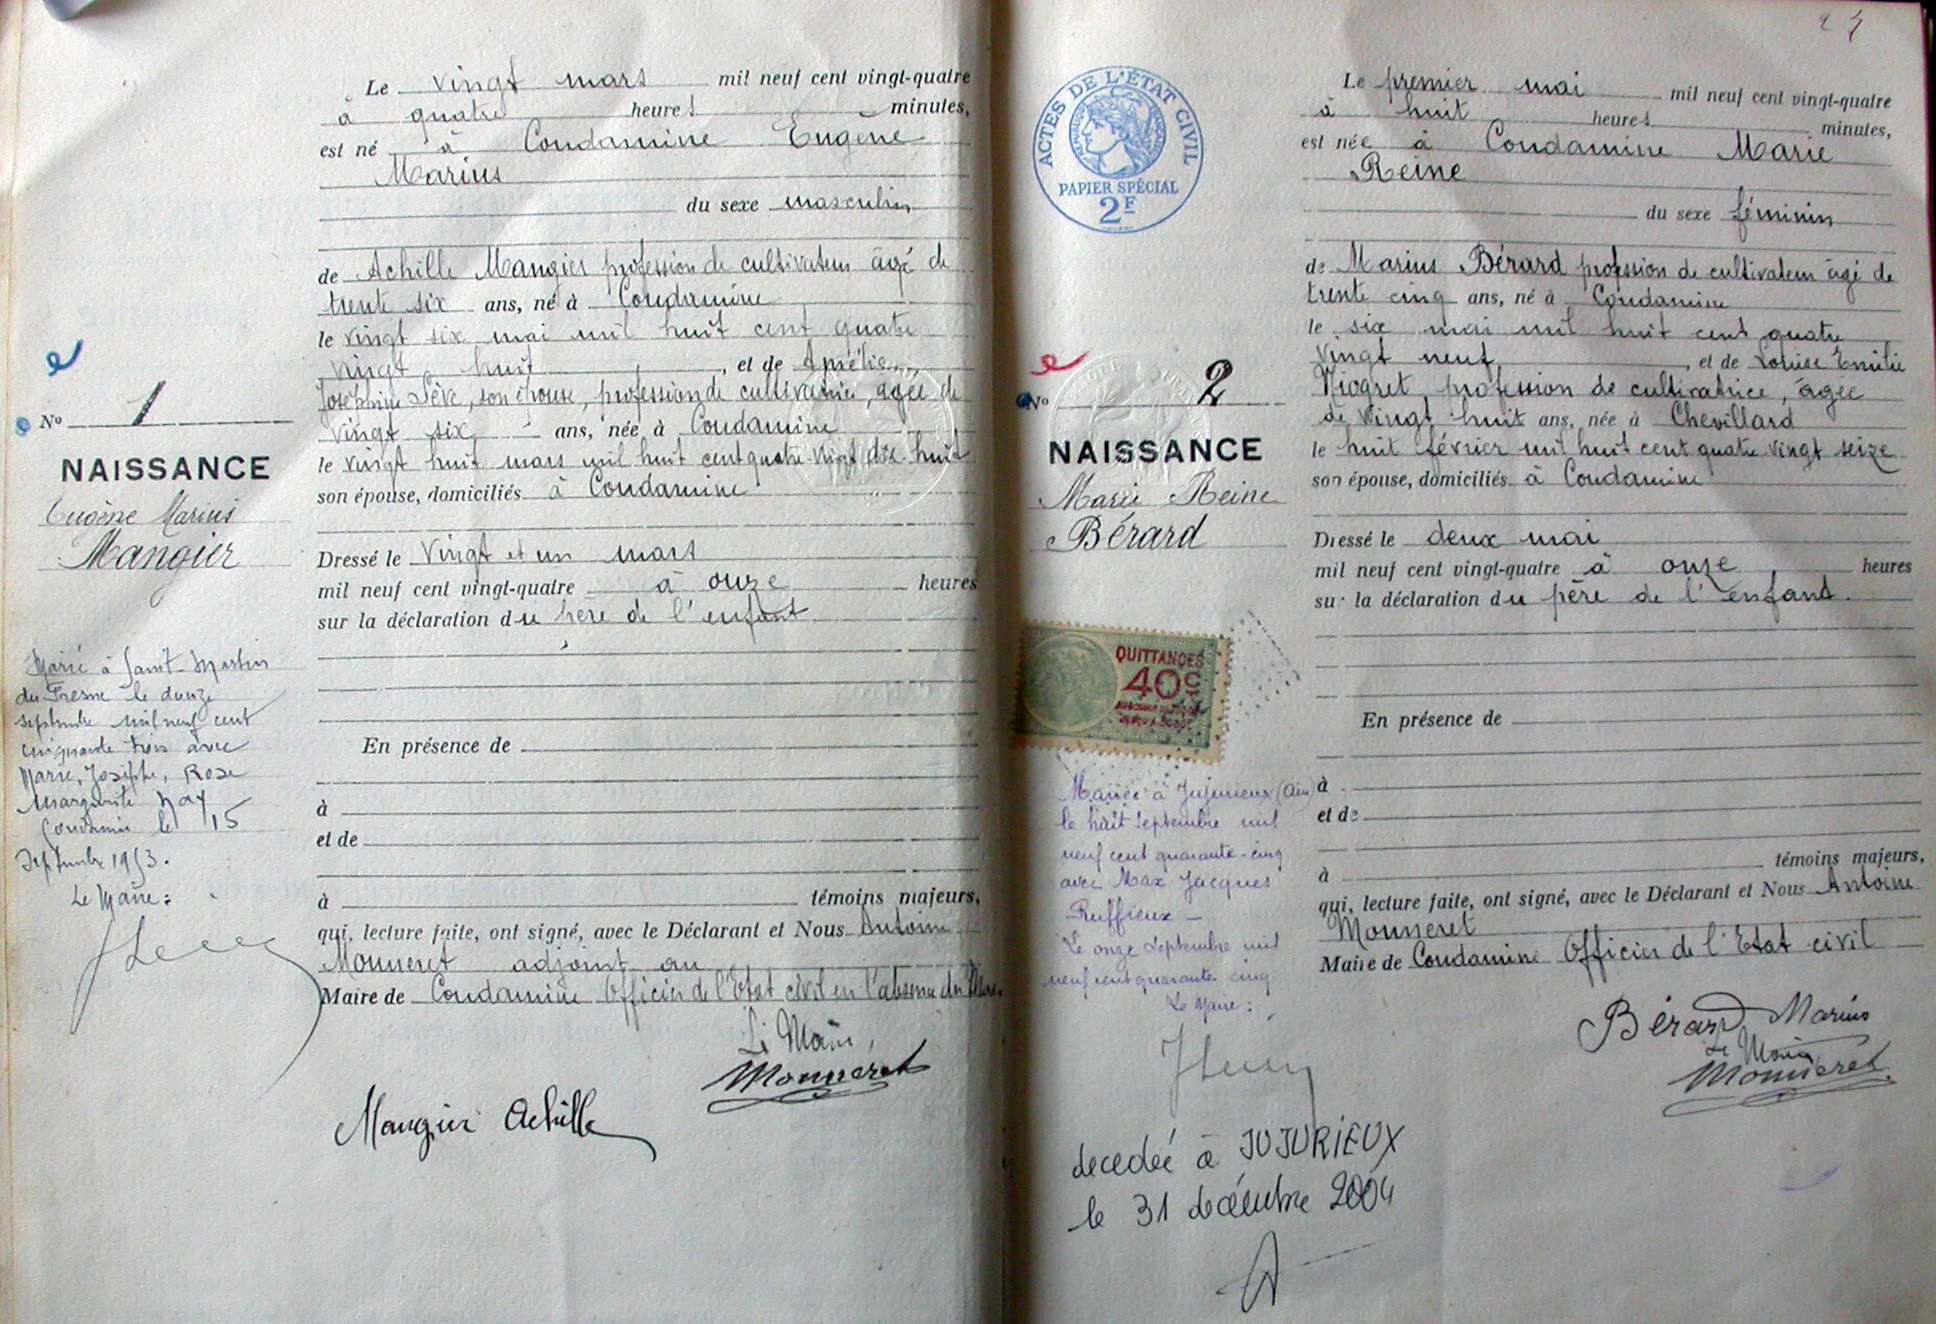 Le vingt mars mil neuf cent vingt-quatre
à quatre heures minutes,
est né à Condamine Eugène
Marius
du sexe masculin
de Achille Mangier profession de cultivateur âgé de
trente six ans, né à Condamine
le vingt six mai mil huit cent quatre
vingt huit, et de
Joséphine Sève, son épouse, profession de cultivatrice, âgée de
vingt six ans, née à Condamine
le vingt huit mars mil huit cent quatre-vingt dix-huit
son épouse, domiciliés à Condamine
Dressé le Vingt et un mars
mil neuf cent vingt-quatre à onze heures
sur la déclaration du père de l'enfant
En présence de
à
et de
à témoins majeurs,
qui, lecture faite, ont signé, avec le Déclarant et Nous Antoine
Monneret adjoint au
Maire de Condamine Officier de l'Etat civil en l'absence du Maire
Le Maire,
Monneret
Mangier Achille
No 1
NAISSANCE
Eugène Marius
Mangier
Marié à Saint-Martin
du Fresne le douze
septembre mil neuf cent
cinquante trois avec
Marie, Josèphe, Rose
Marguerite Nay
Condamine le 15
Septembre 1953.
Le Maire :
24
ACTES DE L'ÉTAT CIVIL
RÉPUBLIQUE FRANÇAISE
PAPIER SPÉCIAL
2F
No 2
NAISSANCE
Marie Reine
Bérard
QUITTANCES
40c
Mariée à Jujurieux (Ain)
le huit septembre mil
neuf cent quarante-cinq
avec Max Jacques
Ruffieux –
Le onze septembre mil
neuf cent quarante-cinq
Le Maire :
decedée à JUJURIEUX
le 31 décembre 2004
Le premier mai mil neuf cent vingt-quatre
à huit heures minutes,
est née à Condamine Marie
Reine
du sexe féminin
de Marius Bérard profession de cultivateur âgé de
trente cinq ans, né à Condamine
le six mai mil huit cent quatre
vingt neuf, et de Louise Emilie
Viogret, profession de cultivatrice, âgée
de vingt huit ans, née à Chevillard
le huit février mil huit cent quatre vingt seize
son épouse, domiciliés à Condamine
Dressé le deux mai
mil neuf cent vingt-quatre à onze heures
sur la déclaration du père de l'enfant.
En présence de
à
et de
à témoins majeurs,
qui, lecture faite, ont signé, avec le Déclarant et Nous Antoine
Monneret
Maire de Condamine Officier de l'Etat civil
Bérard Marius
Le Maire
Monneret